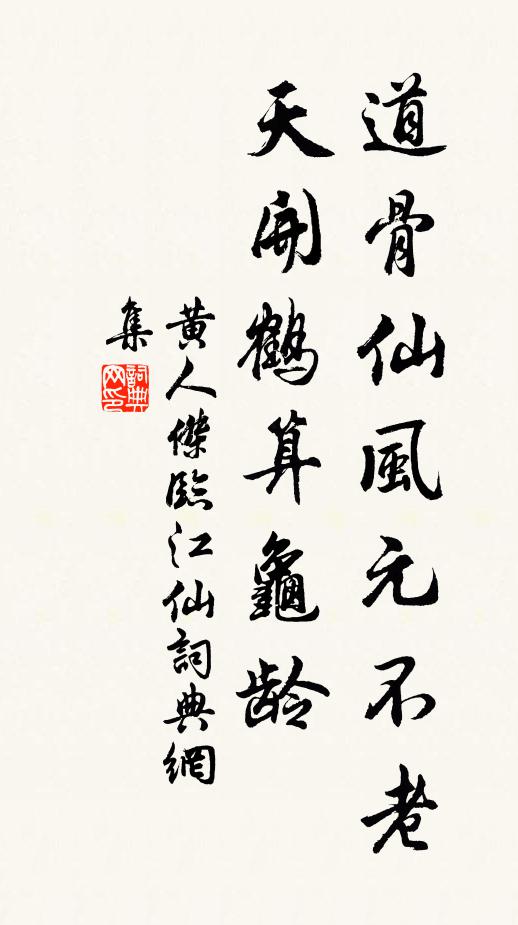 道骨仙風元不老
天開鶴算龜齡
黄人傑臨江仙詞典網
集
詞典網印